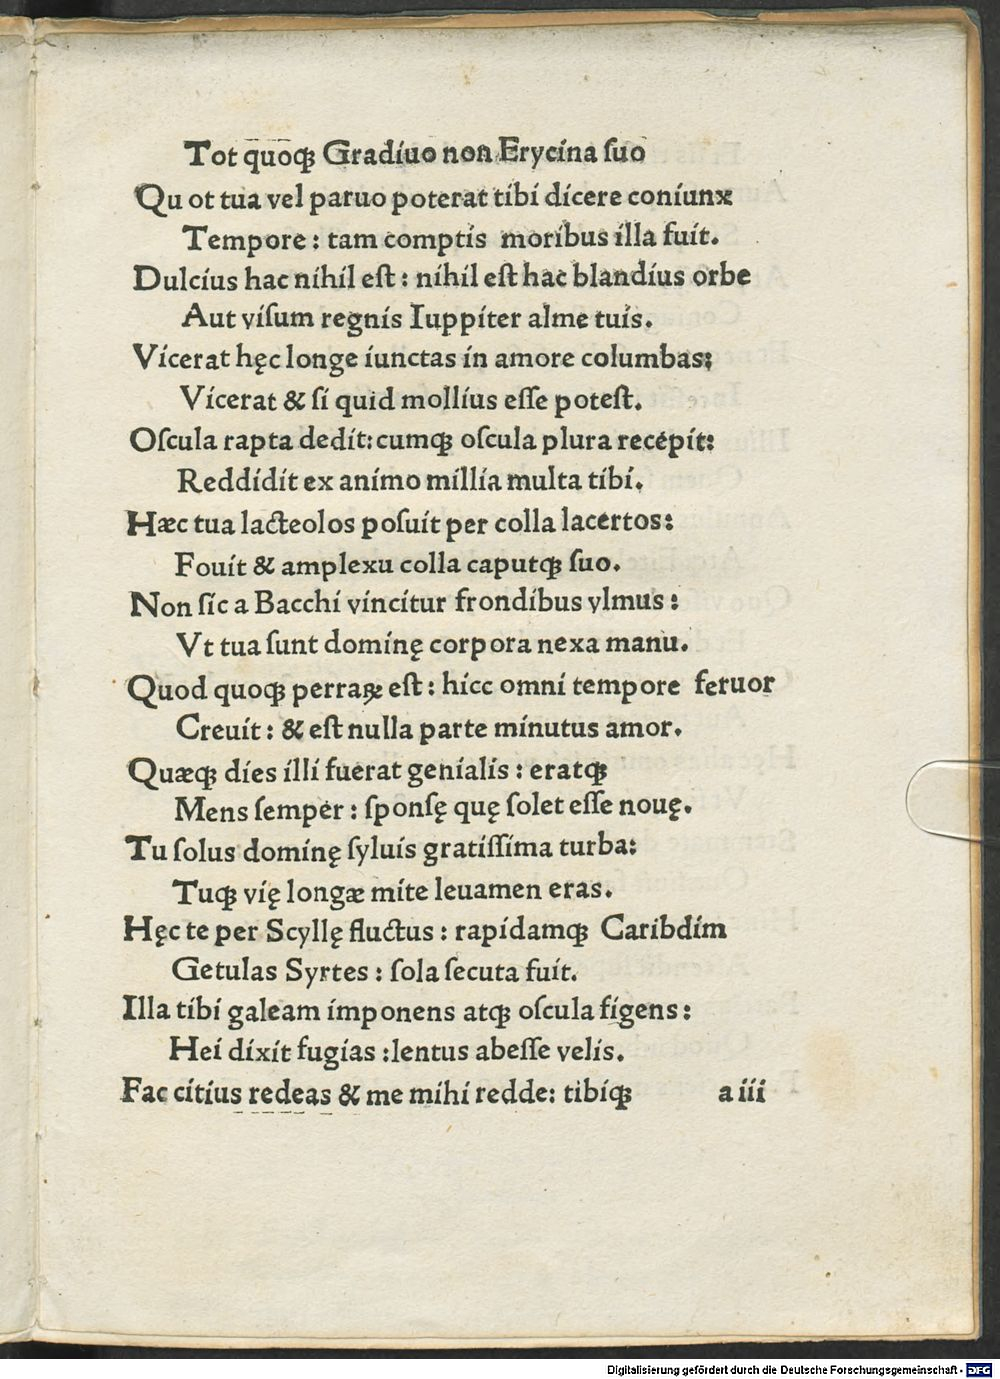 Tot quoqꝫ Gradiuo non Erycina ſuo
Qu ot tua vel paruo poterat tibi dicere coniunx
Tempore : tam comptis moribus illa fuit.
Dulcius hac nihil eſt : nihil eſt hac blandius orbe
Aut viſum regnis Iuppiter alme tuis.
Vicerat hęc longe iunctas in amore columbas;
Vicerat & ſi quid mollius eſſe poteſt.
Oſcula rapta dedit: cumqꝫ oſcula plura recepit:
Reddidit ex animo millia multa tibi.
Hæc tua lacteolos poſuit per colla lacertos:
Fouit & amplexu colla caputqꝫ ſuo.
Non ſic a Bacchi vincitur frondibus vlmus :
Vt tua ſunt dominę corpora nexa manu.
Quod quoqꝫ perraꝝ eſt : hicc omni tempore feruor
Creuit : & eſt nulla parte minutus amor.
Quæqꝫ dies illi fuerat genialis : eratqꝫ
Mens ſemper : ſponſę quę ſolet eſſe nouę.
Tu ſolus dominę ſyluis gratiſſima turba:
Tuqꝫ vię longæ mite leuamen eras.
Hęc te per Scyllę fluctus : rapidamqꝫ Caribdim
Getulas Syrtes : ſola ſecuta fuit.
Illa tibi galeam imponens atqꝫ oſcula figens :
Hei dixit fugias :lentus abeſſe velis.
Fac citius redeas & me mihi redde: tibiqꝫ a iii
Digitalisierung gefördert durch die Deutsche Forschungsgemeinschaft - DFG